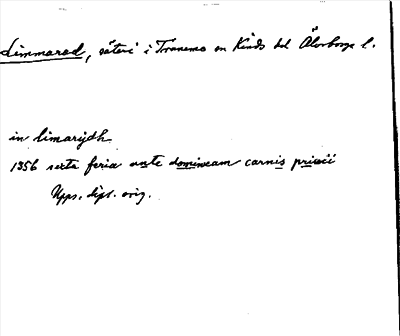 Limmared, säteri i Tranemo sn Kinds hd Älvsborgs l.
in limarydh
1356 sexta feria ante dominicam carnis privii
Upps. dipl. orig.